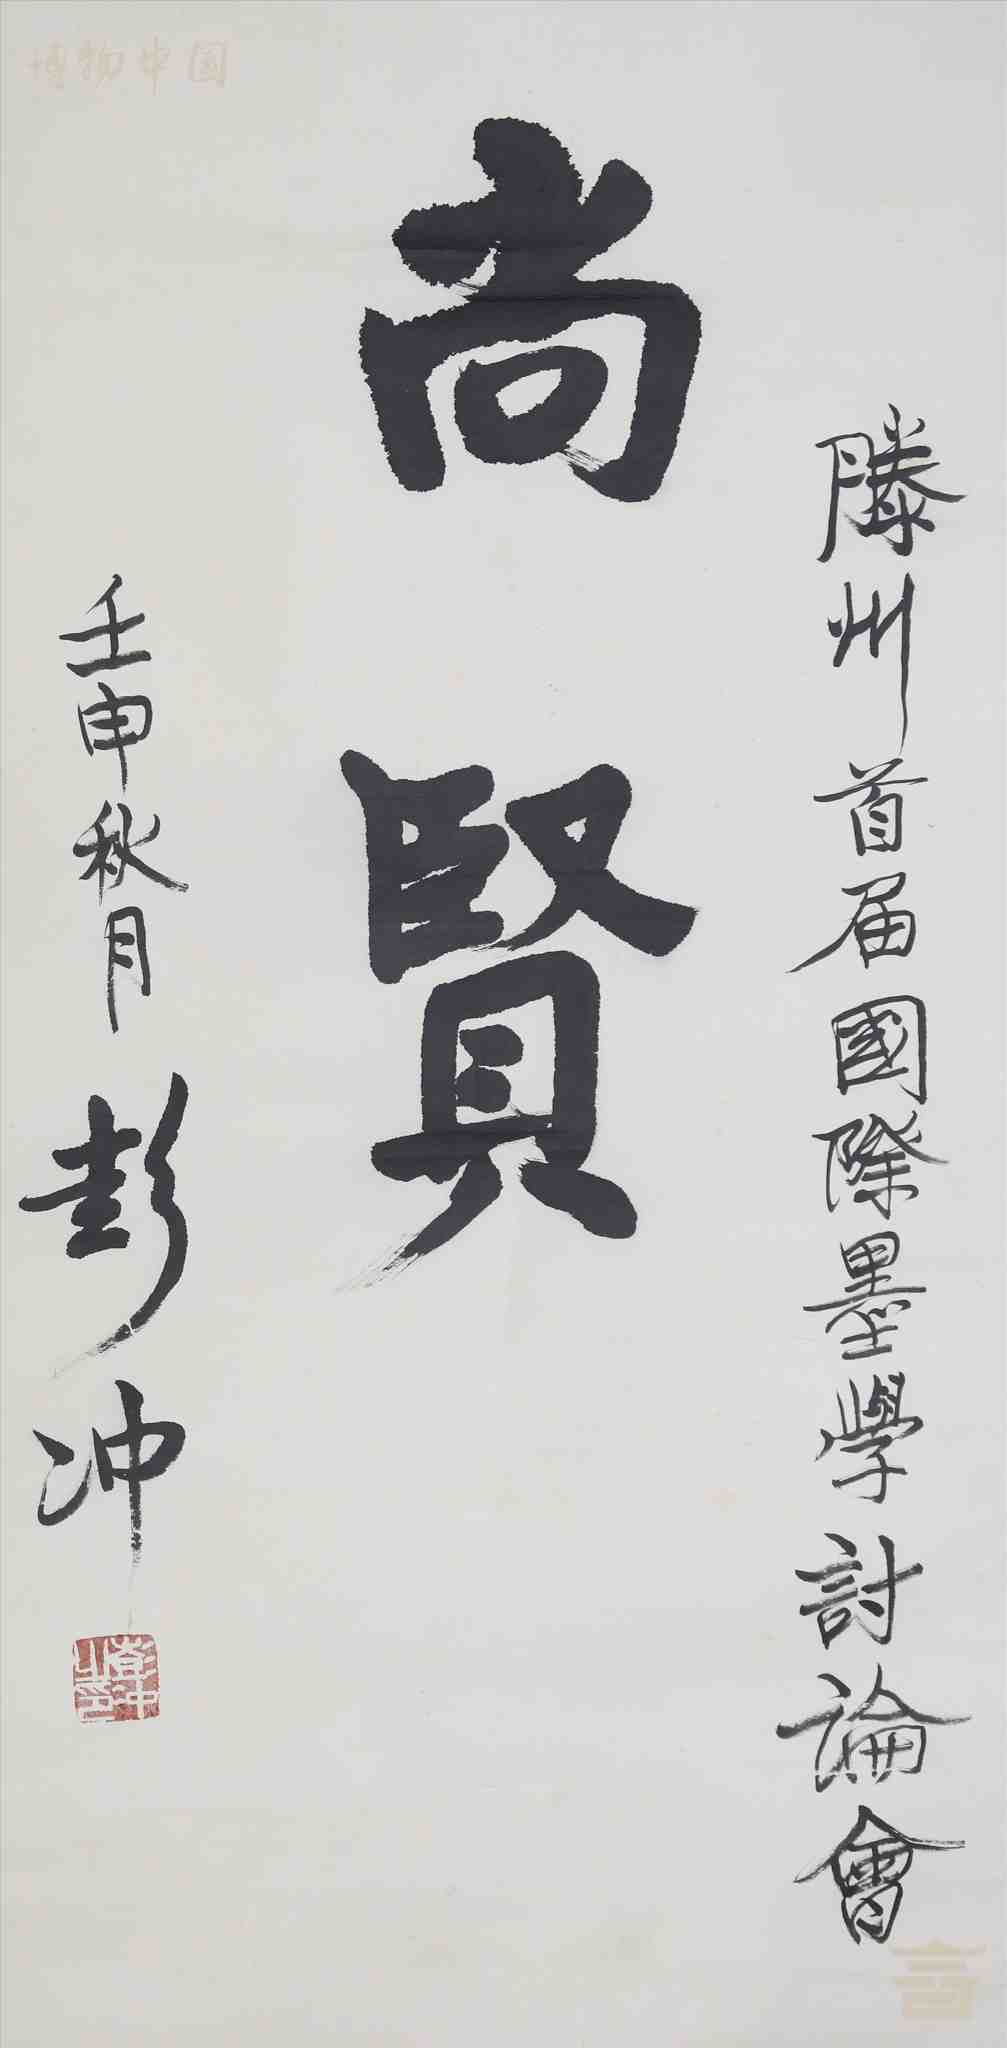 滕州首届國際墨學討論會
尚賢
壬申秋月 彭冲
彭冲之印
博物中国